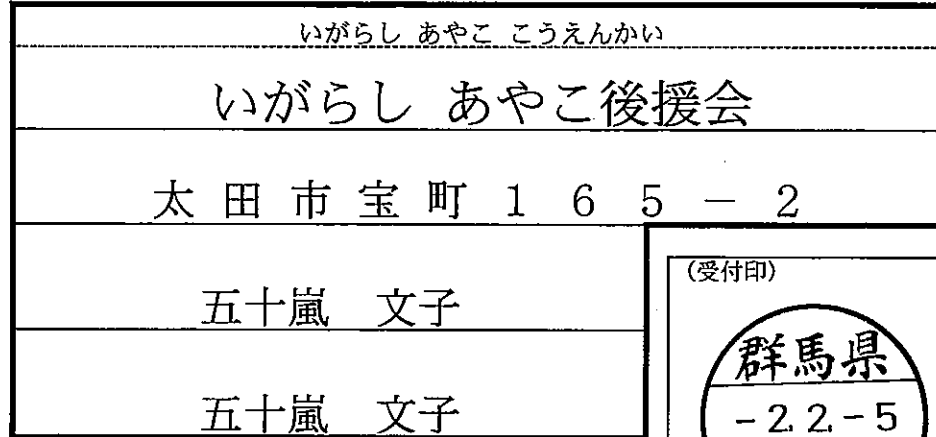 いがらし あやこ こうえんかい
いがらし あやこ後援会
太田市宝町165－2
五十嵐 文子
(受付印)
群馬県
五十嵐 文子
-2.2.-5